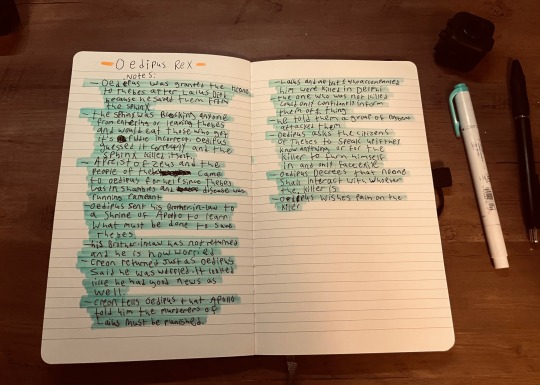 Oedipus Rex
Notes:
- Oedipus was granted the throne
to Thebes after Laius Died
because he saved them from
the Sphinx
- the Sphinx was Blocking anyone
from entering or leaving Thebes
and would eat those who got
it's incorrect. Oedipus
guessed it correctly and the
Sphinx killed itself.
- A Priest of Zeus and the
people of came
to Oedipus for help since Thebes
was in shambles and disease was
running rampant
- Oedipus sent his Brother-in-law to
a Shrine of Apollo to learn
what must be done to save
Thebes
- his Brother-in-law has not returned
and he is now worried
- Creon returned just as Oedipus
said he was worried. It looked
like he had good news as
well.
- Creon tells Oedipus that Apollo
told him the murderers of
Laius must be punished.
- Laius and all but who accompanied
him were killed in
the one who was not killed
could only confidently inform
them of 1 thing
- he told them a group of
attacked them
- Oedipus asks the citizens
of Thebes to speak if they
know anything or for the
killer to turn himself
in and only face exile
- Oedipus Decrees that no one
shall interact with whoever
the killer is
- Oedipus wishes pain on the
killer